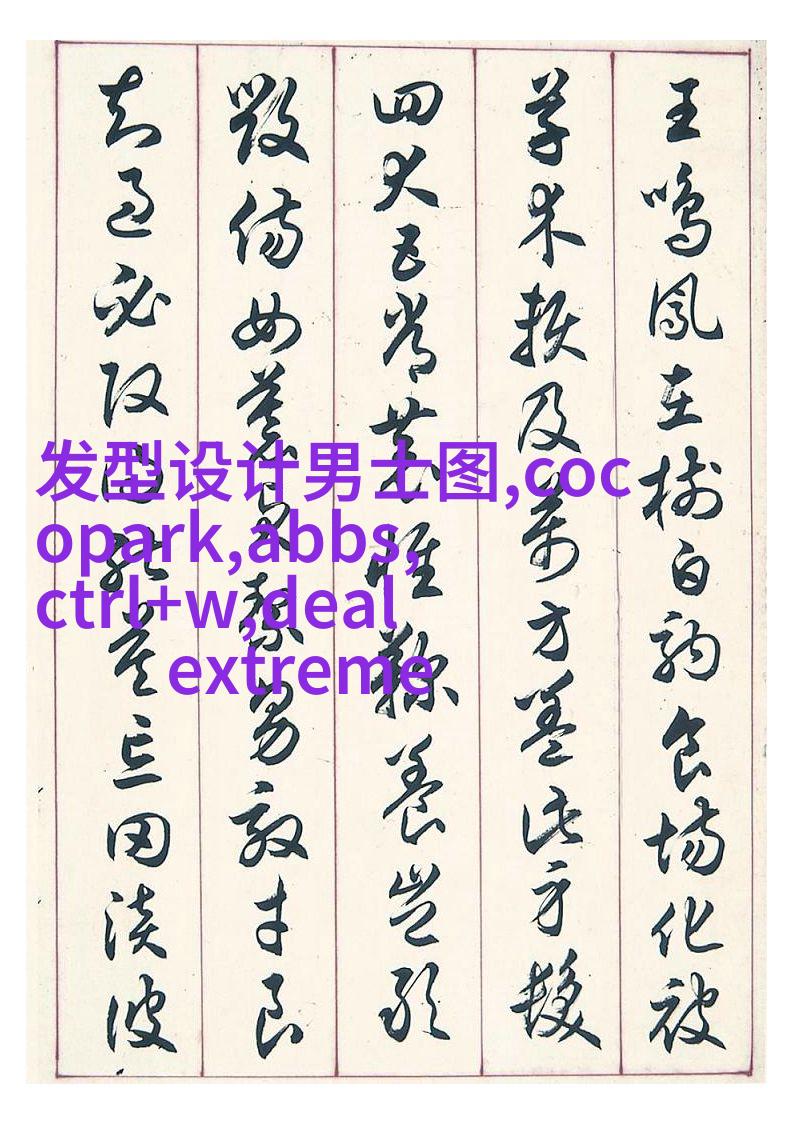 王鳴鳳在樹白駒食場化被
草木賴及萬方蓋此身髮
四大五常恭惟鞠養豈敢
毀傷女慕貞絜男效才良
知過必改得能莫忘罔談彼
发型设计男士图,coc
opark,abbs,
ctrl+w,deal
extreme